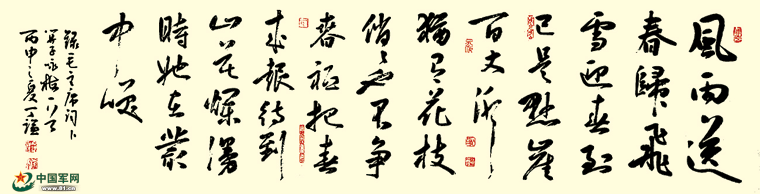 風雨送
春歸飛
雪迎春到
已是懸崖
百丈冰
猶有花枝
俏〻也不爭
春祇把春
來報待到
山花爛漫
時她在叢
中咲
錄毛主席詞卜
算子咏梅一首
丙申之夏
中国军网
www.81.cn